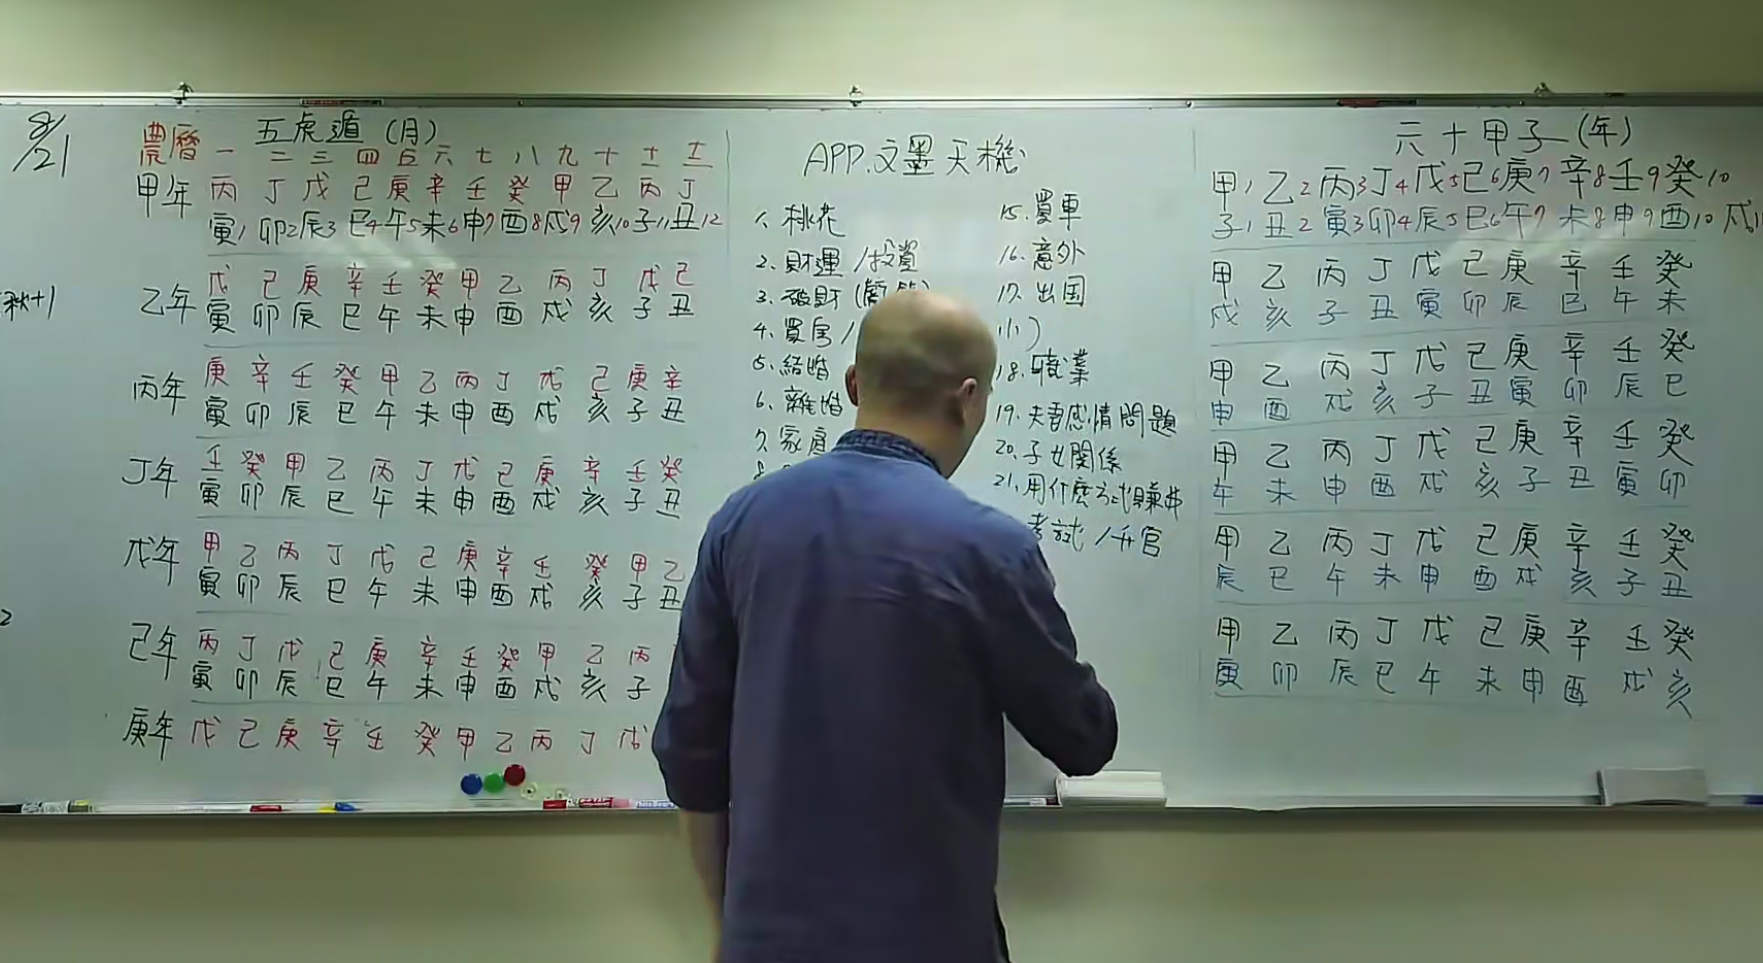 8/21
五虎遁(月)
農曆 一 二 三 四 五 六 七 八 九 十 十一 十二
甲年 丙 丁 戊 己 庚 辛 壬 癸 甲 乙 丙 丁
寅1 卯2 辰3 巳4 午5 未6 申7 酉8 戌9 亥10 子11 丑12
秋+1
戊 己 庚 辛 壬 癸 甲 乙 丙 丁 戊 己
乙年 寅 卯 辰 巳 午 未 申 酉 戌 亥 子 丑
丙年 庚 辛 壬 癸 甲 乙 丙 丁 戊 己 庚 辛
寅 卯 辰 巳 午 未 申 酉 戌 亥 子 丑
丁年 壬 癸 甲 乙 丙 丁 戊 己 庚 辛 壬 癸
寅 卯 辰 巳 午 未 申 酉 戌 亥 子 丑
戊年 甲 乙 丙 丁 戊 己 庚 辛 壬 癸 甲 乙
寅 卯 辰 巳 午 未 申 酉 戌 亥 子 丑
2
己年 丙 丁 戊 己 庚 辛 壬 癸 甲 乙 丙
寅 卯 辰 巳 午 未 申 酉 戌 亥 子
庚年 戊 己 庚 辛 壬 癸 甲 乙 丙 丁 戊
APP.文墨天機
1. 桃花
2. 財運/投資
3. 破財(
4. 買房/
5. 結婚
6. 離婚
7. 家庭
15. 買車
16. 意外
17. 出国
小)
18. 職業
19. 夫妻感情問題
20. 子女關係
21. 用什麼方式賺錢
考試/升官
六十甲子(年)
甲1 乙2 丙3 丁4 戊5 己6 庚7 辛8 壬9 癸10
子1 丑2 寅3 卯4 辰5 巳6 午7 未8 申9 酉10 戌
甲 乙 丙 丁 戊 己 庚 辛 壬 癸
戌 亥 子 丑 寅 卯 辰 巳 午 未
甲 乙 丙 丁 戊 己 庚 辛 壬 癸
申 酉 戌 亥 子 丑 寅 卯 辰 巳
甲 乙 丙 丁 戊 己 庚 辛 壬 癸
午 未 申 酉 戌 亥 子 丑 寅 卯
甲 乙 丙 丁 戊 己 庚 辛 壬 癸
辰 巳 午 未 申 酉 戌 亥 子 丑
甲 乙 丙 丁 戊 己 庚 辛 壬 癸
寅 卯 辰 巳 午 未 申 酉 戌 亥